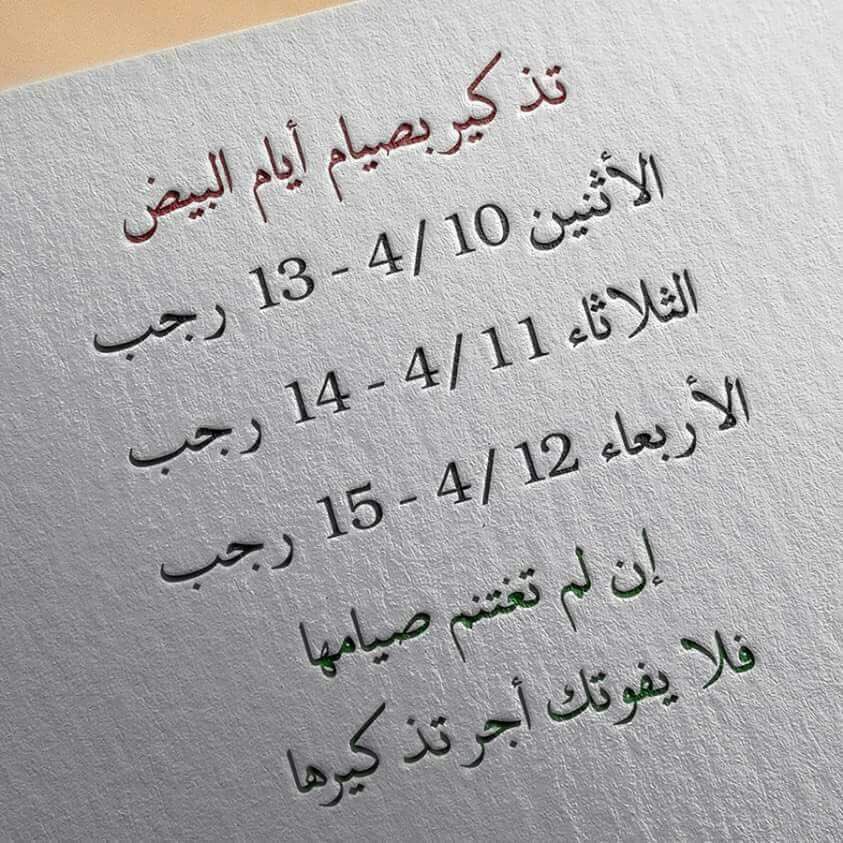 تذكير بصيام أيام البيض
الأثنين 10 /4 - 13 رجب
الثلاثاء 11 /4 - 14 رجب
الأربعاء 12 /4 - 15 رجب
إن لم تغتنم صيامها
فلا يفوتك أجر تذكيرها